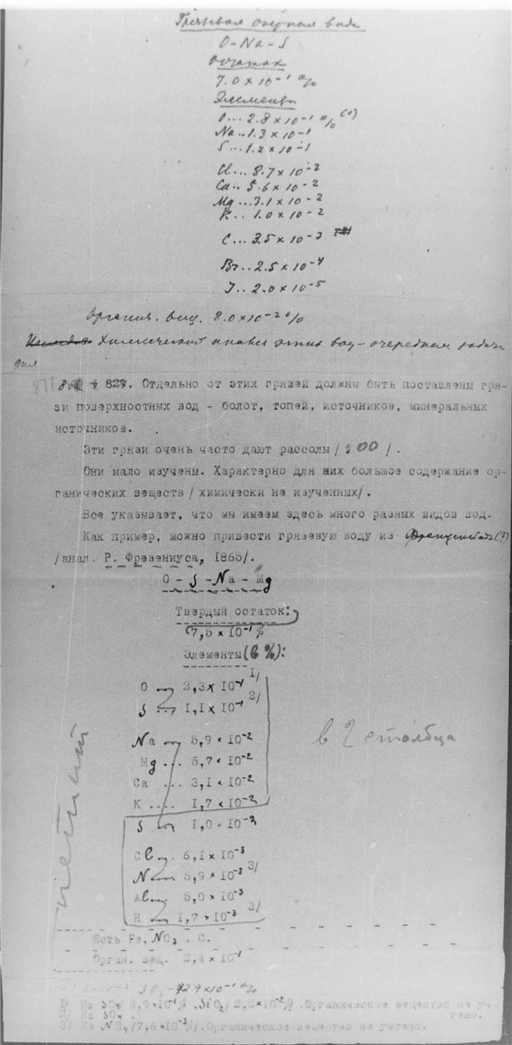 Грязевая озерная вода
O-Na-S
Остаток
7.0×10⁻¹ %
Элементы
O... 2.8×10⁻¹ % (1)
Na.. 1.3×10⁻¹
S... 1.2×10⁻¹
Cl... 8.7×10⁻²
Ca.. 5.6×10⁻²
Mg... 3.1×10⁻²
K... 1.0×10⁻²
C... 3.5×10⁻³
Br.. 2.5×10⁻⁴
J... 2.0×10⁻⁵
Органич. вещ. 8.0×10⁻² %
Химический анализ этих вод - очередная задача
дня
§ 829. Отдельно от этих грязей должны быть поставлены гря-
зи поверхностных вод - болот, топей, источников, минеральных
источников.
Эти грязи очень часто дают рассолы /§00/.
Они мало изучены. Характерно для них большое содержание ор-
ганических веществ /химически не изученных/.
Все указывает, что мы имеем здесь много разных видов вод.
Как пример, можно привести грязевую воду из
/анал. Р. Фрезениуса, 1865/.
O - S - Na - Mg
Твердый остаток:
7,5×10⁻¹%
Элементы (в %):
O ... 2,3×10⁻¹ 1/
S ... 1,1×10⁻¹ 2/
Na ... 5,9×10⁻²
Mg ... 5,7×10⁻²
Ca ... 3,1×10⁻²
K .... 1,7×10⁻²
S ... 1,0×10⁻²
Cl ... 6,1×10⁻³
N ... 5,9×10⁻³ 3/
Al ... 5,0×10⁻³
H ... 1,7×10⁻³ 3/
в 2 столбца
петит
Есть Fe, NO₃ . C.
Орган. вещ. 2,4×10⁻¹
1/ Из SO₄ 3,9×10⁻¹%, SiO₂ / 2,3×10⁻²%. Органическое вещество не уч-
тено.
2/ Из SO₄.
3/ Из NH₄ /7,6×10⁻³%/. Органическое вещество не учтено.